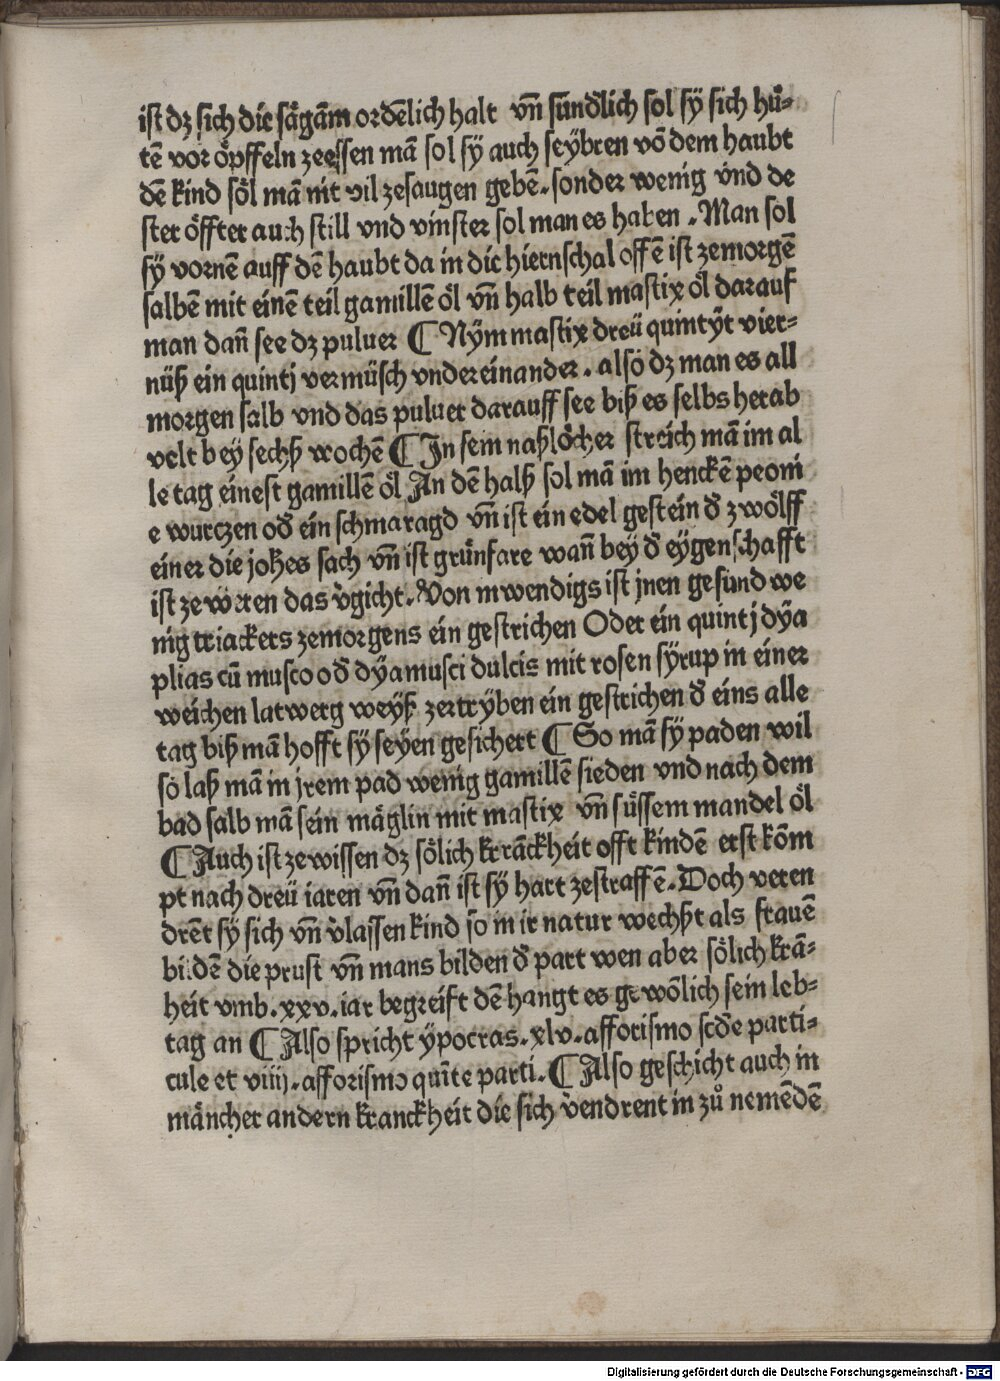 ist dz sich die sa̎gam̄ ordēlich halt vn̄ sünd'lich sol sÿ sich hů-
tē vor öpffeln zeessen mā sol sÿ auch seÿbren vō dem haubt
dē kind söl mā nit vil zesaugen gebē. sonder wenig vnd de
ster öffter auch still vnd vinster sol man es haben . Man sol
sÿ vornē auff dē haubt da in die hiernschal offē ist zemorgē
salbē mit einē teil gamillē öl vn̄ halb teil mastix öl darauf
man dan̄ see dz puluer ¶ Nÿm mastix dreü quintÿt vier-
nüß ein quintj vermüsch vndereinander . also dz man es all
morgen salb vnd das puluer darauff see biß es selbs herab
velt beÿ sechß wochē ¶ In sein naßlöcher streich mā im al
le tag einest gamillē öl An dē halß sol mā im henckē peoni
e wurczen od' ein schmaragd vn̄ ist ein edel gestein d' zwölff
einer die johēs sach vn̄ ist grünfare wan̄ beÿ d' eÿgenschafft
ist ze wörren das v̓gicht. Von inwendigs ist jnen gesund we
nig triackers zemorgens ein gestrichen Oder ein quintj dÿa
plias cū musco od' dÿamusci dulcis mit rosen sÿrup in einer
weichen latwerg weÿß zertrÿben ein gestrichen d' eins alle
tag biß mā hofft sÿ seÿen gesichert ¶ So mā sÿ paden wil
so laß mā in jrem pad wenig gamillē sieden vnd nach dem
bad salb mā sein mäglin mit mastix vn̄ süssem mandel öl
¶ Auch ist ze wissen dz sölich krāckheit offt kindē erst kōm
pt nach dreü iaren vn̄ dan̄ ist sÿ hart zestraffē. Doch veren
drēt sÿ sich vn̄ v̓lassen kind so in ir natur wechßt als frauē
bildē die prust vn̄ mans bilden d' part wen aber sölich krā-
heit vmb . xxv. iar begreift dē hangt es gewōlich sein leb-
tag an ¶ Also spricht ÿpocras. xlv. afforismo scd̄e parti-
cule et viiij. afforismo quīte parti. ¶ Also geschicht auch in
mäncher andern kranckheit die sich v̓endrent in zů nemēdē
Digitalisierung gefördert durch die Deutsche Forschungsgemeinschaft - DFG